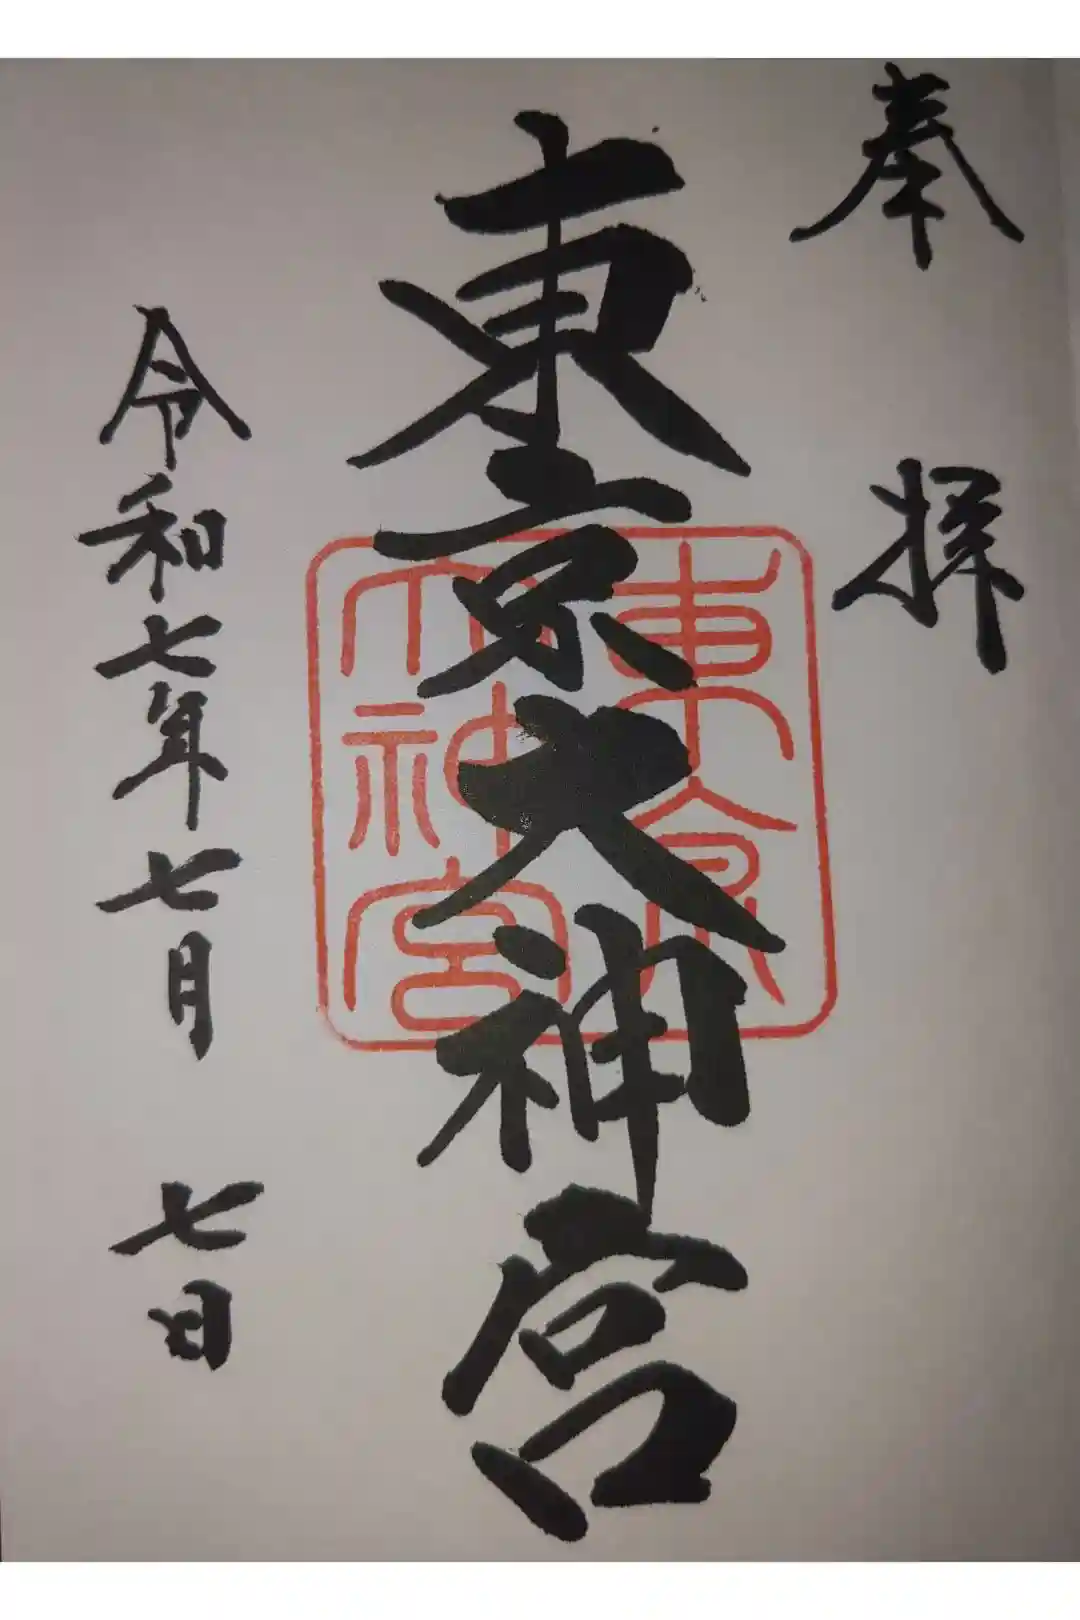 奉拝
東京大神宮
東京
大神宮
令和七年七月七日